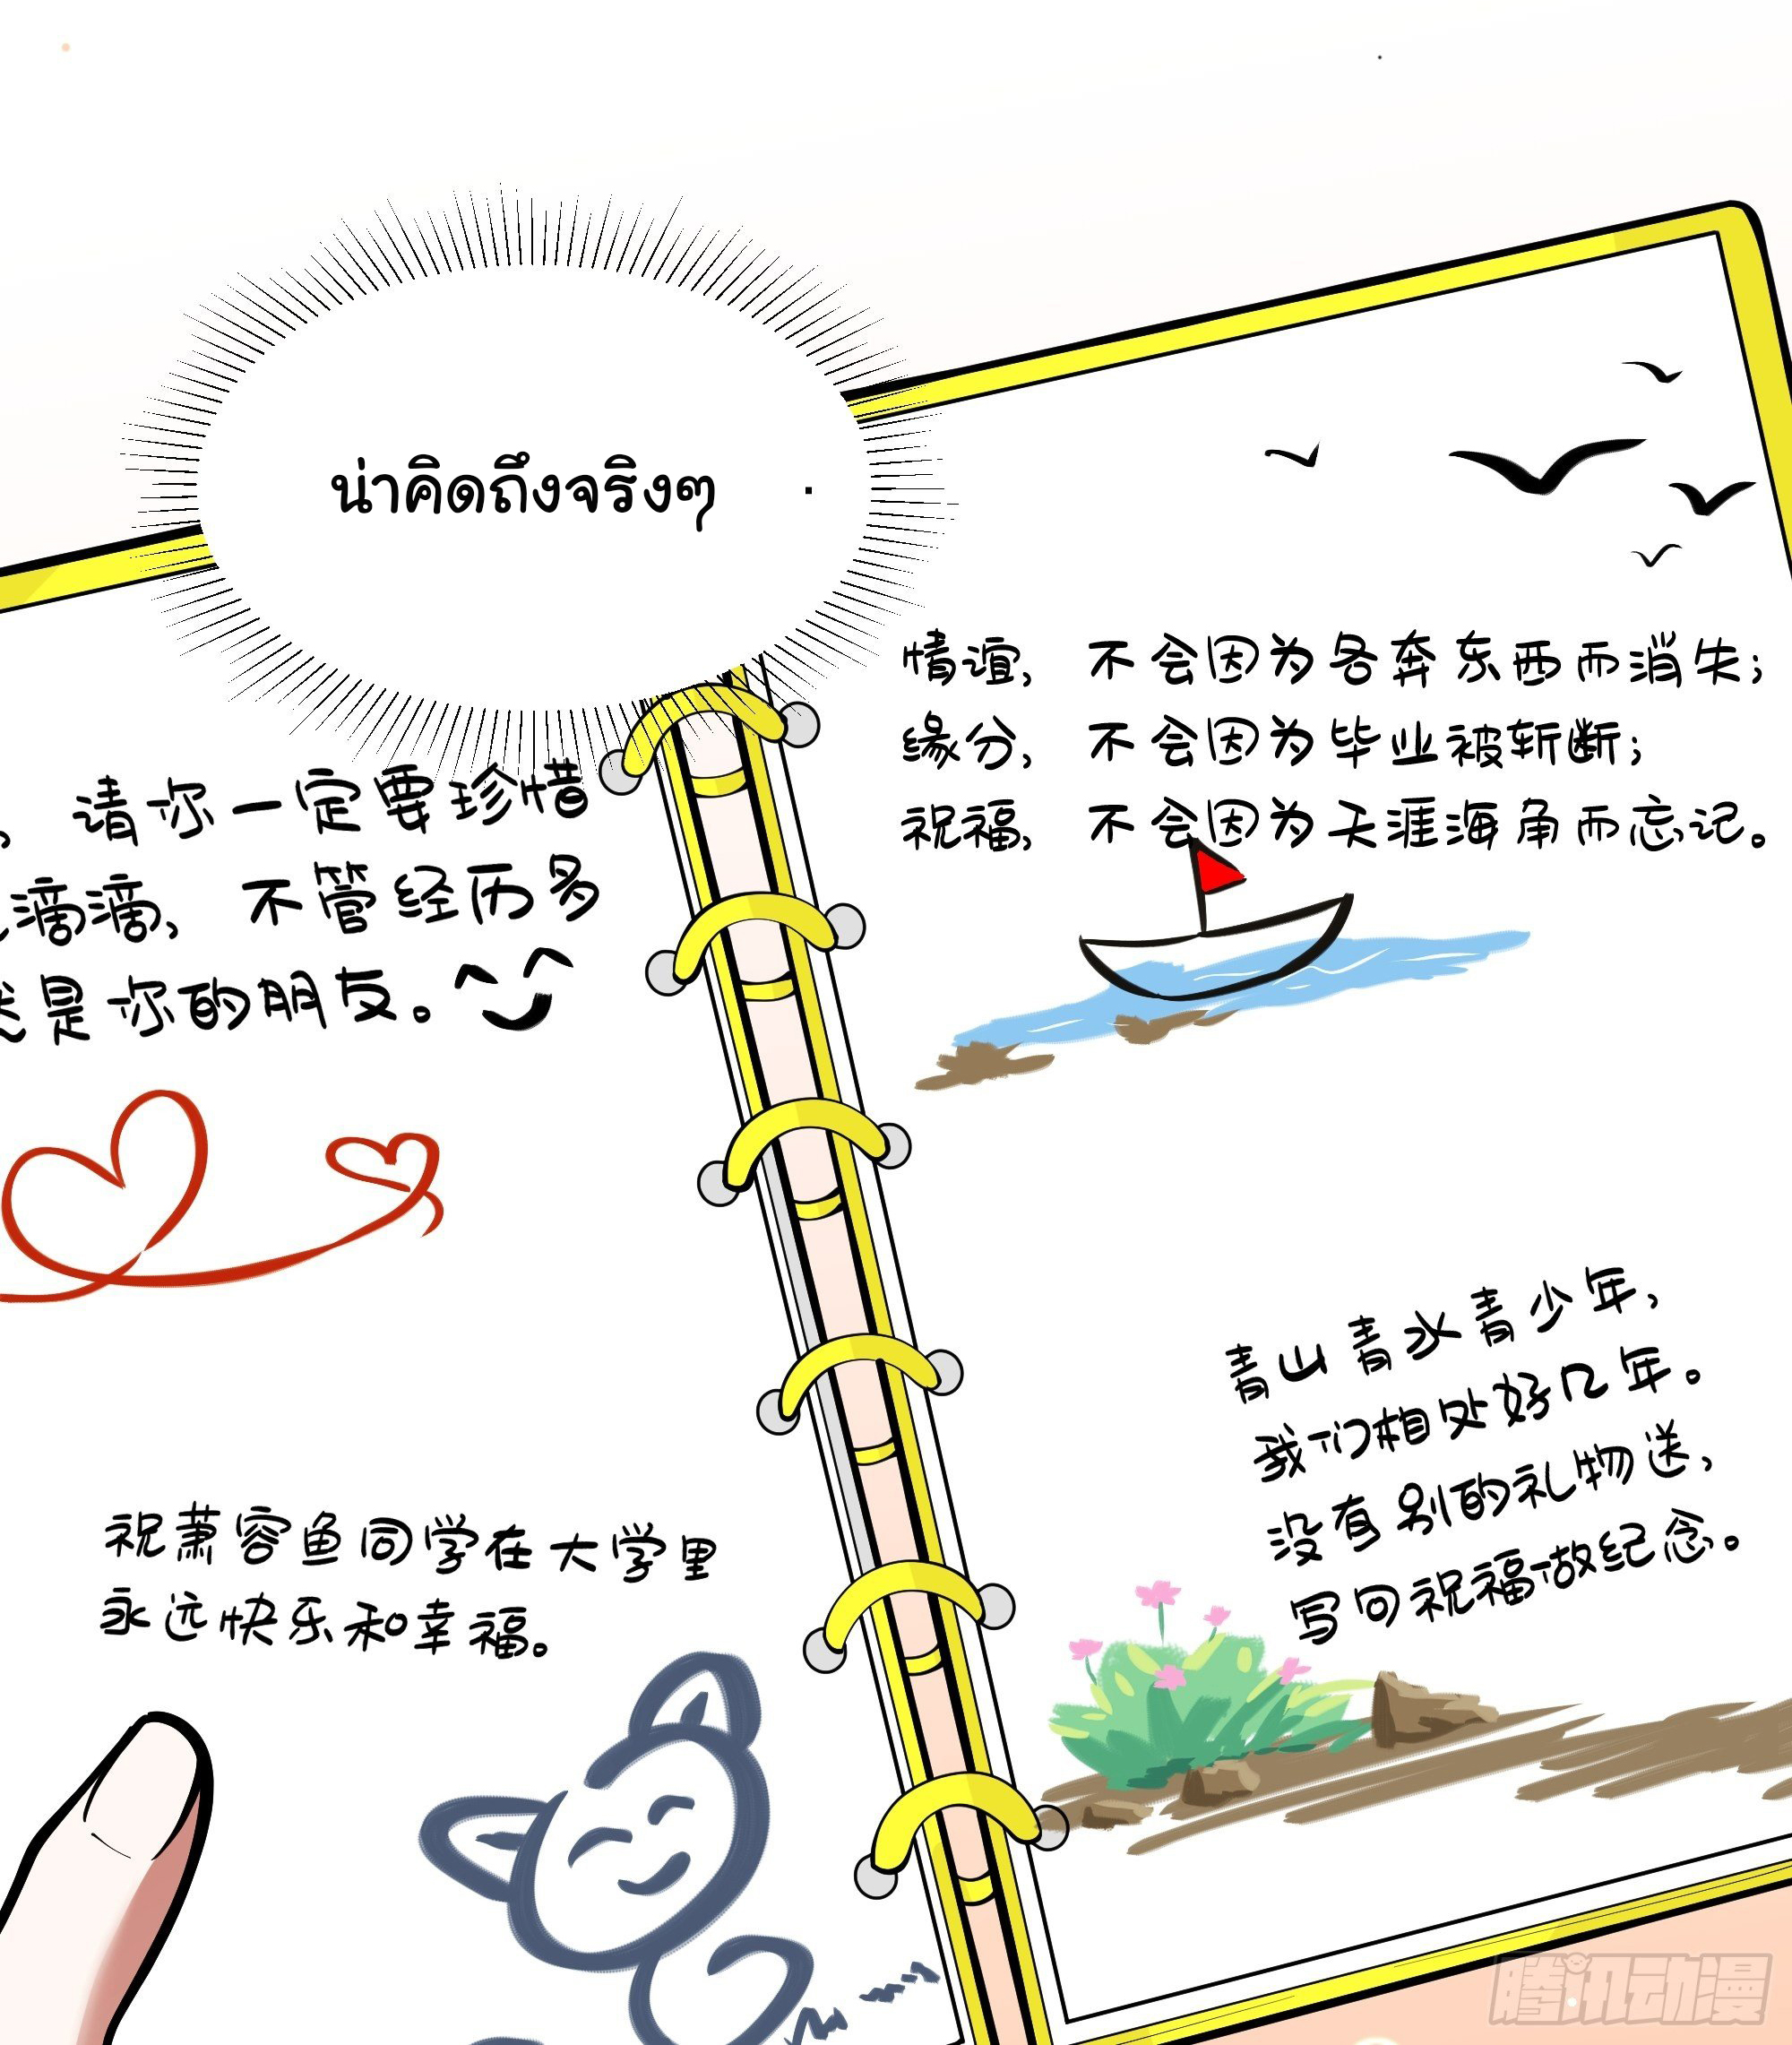 น่าคิดถึงจริงๆ
，请你一定要珍惜
滴滴，不管经历多
是你的朋友。
祝萧容鱼同学在大学里
永远快乐和幸福。
情谊，不会因为各奔东西而消失；
缘分，不会因为毕业被斩断；
祝福，不会因为天涯海角而忘记。
青山青水青少年，
我们相处好几年。
没有别的礼物送，
写句祝福做纪念。
腾讯动漫